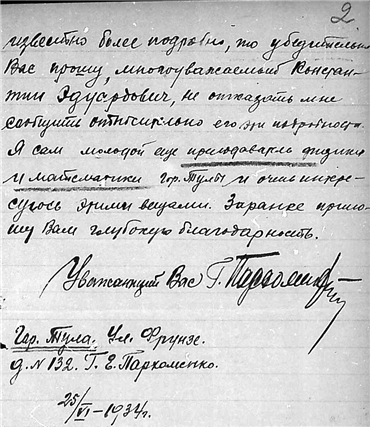 2
известно более подробно, то убедительно
Вас прошу, многоуважаемый Констан-
тин Эдуардович, не отказать мне
сообщить относительно его эти подробности.
Я сам молодой еще преподаватель физики
и математики гор. Тулы и очень интере-
суюсь этими вещами. Заранее прино-
шу Вам глубокую благодарность.
Уважающий Вас Г. Пархоменко
Гор. Тула. Ул. Фрунзе.
д. N 132. Г. Е. Пархоменко.
25/VI–1934 г.